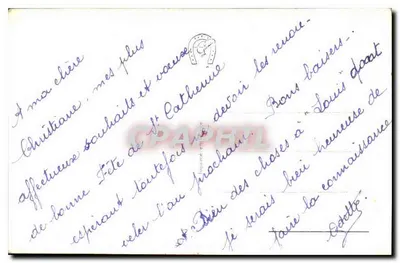 A ma chère
Christiane, mes plus
affectueux souhaits et voeux
de bonne Fête de Ste Catherine
espérant toutefois ne devoir les renou-
veler l'an prochain. Bons baisers...
et Bien des choses à "Louis" dont
je serais bien heureuse de
faire la connaissance
Odette
CPAPHIL